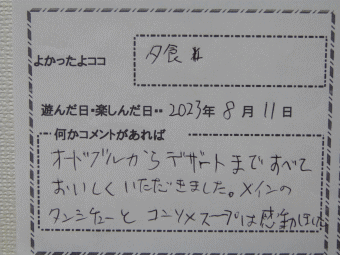 よかったよココ
夕食
遊んだ日・楽しんだ日・・ 2023年 8月 11日
何かコメントがあれば
オードブルからデザートまですべて
おいしくいただきました。メインの
タンシチューと コンソメスープは感動しました